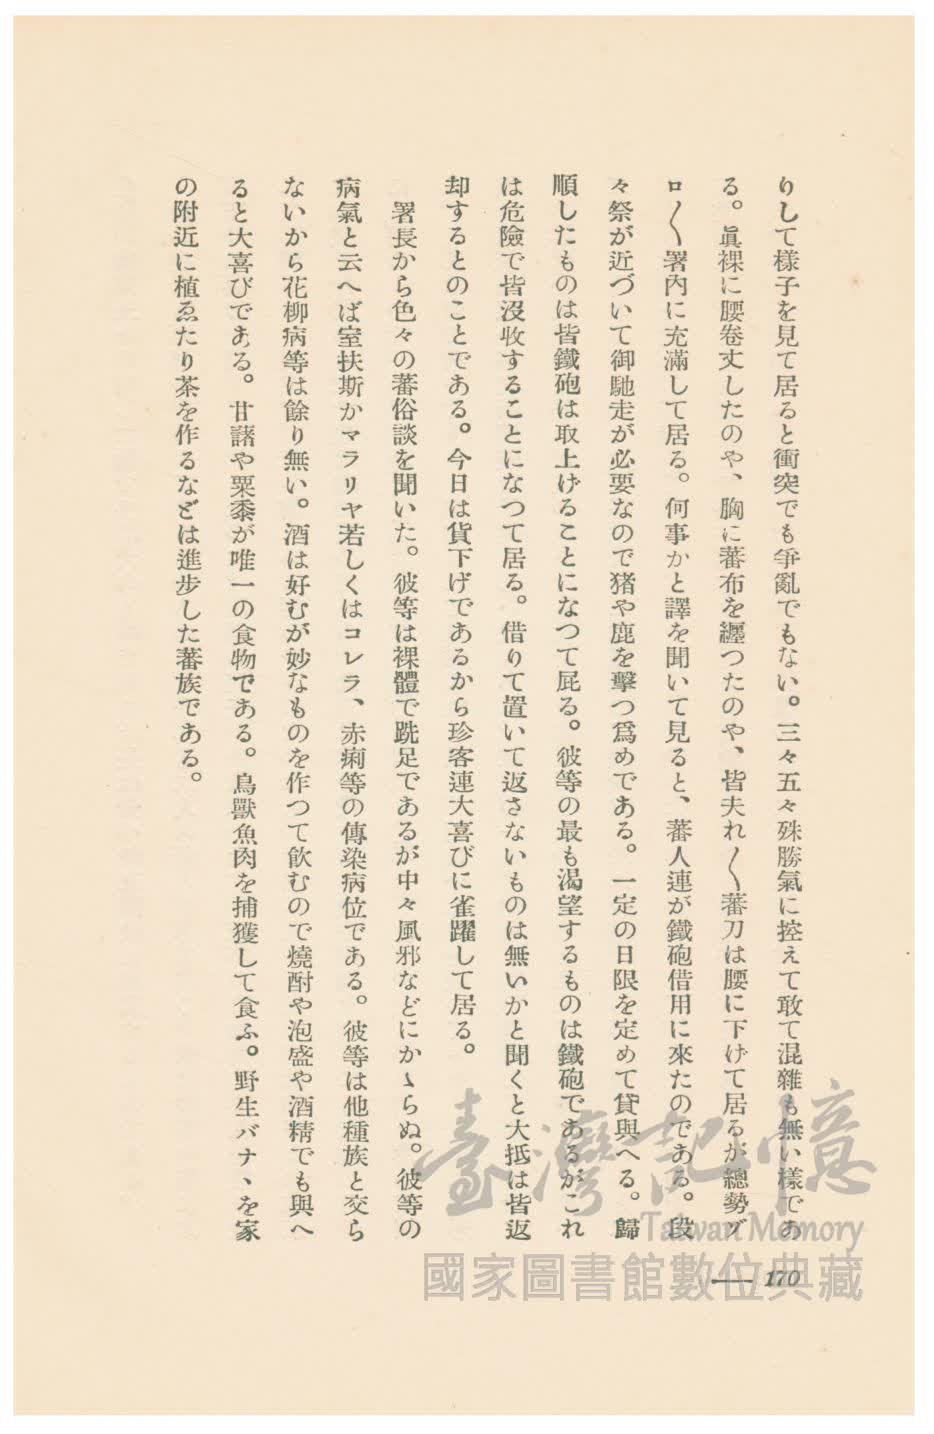 りして樣子を見て居ると衝突でも爭亂でもない。三々五々殊勝氣に控えて敢て混雜も無い樣であ
る。眞裸に腰卷丈したのや、胸に蕃布を纒つたのや、皆夫れ〳〵蕃刀は腰に下げて居るが總勢ゾ
ロ〳〵署內に充滿して居る。何事かと譯を聞いて見ると、蕃人連が鐵砲借用に來たのである。段
々祭が近づいて御馳走が必要なので猪や鹿を擊つ爲めである。一定の日限を定めて貸與へる。歸
順したものは皆鐵砲は取上げることになつて居る。彼等の最も渴望するものは鐵砲であるがこれ
は危險で皆沒收することになつて居る。借りて置いて返さないものは無いかと聞くと大抵は皆返
却するとのことである。今日は貨下げであるから珍客連大喜びに雀躍して居る。
署長から色々の蕃俗談を聞いた。彼等は裸體で跣足であるが中々風邪などにかゝらぬ。彼等の
病氣と云へば室扶斯かマラリヤ若しくはコレラ、赤痢等の傳染病位である。彼等は他種族と交ら
ないから花柳病等は餘り無い。酒は好むが妙なものを作つて飮むので燒酎や泡盛や酒精でも與へ
ると大喜びである。甘藷や粟黍が唯一の食物である。鳥獸魚肉を捕獲して食ふ。野生バナヽを家
の附近に植ゑたり茶を作るなどは進步した蕃族である。
170
臺灣記憶
Taiwan Memory
國家圖書館數位典藏